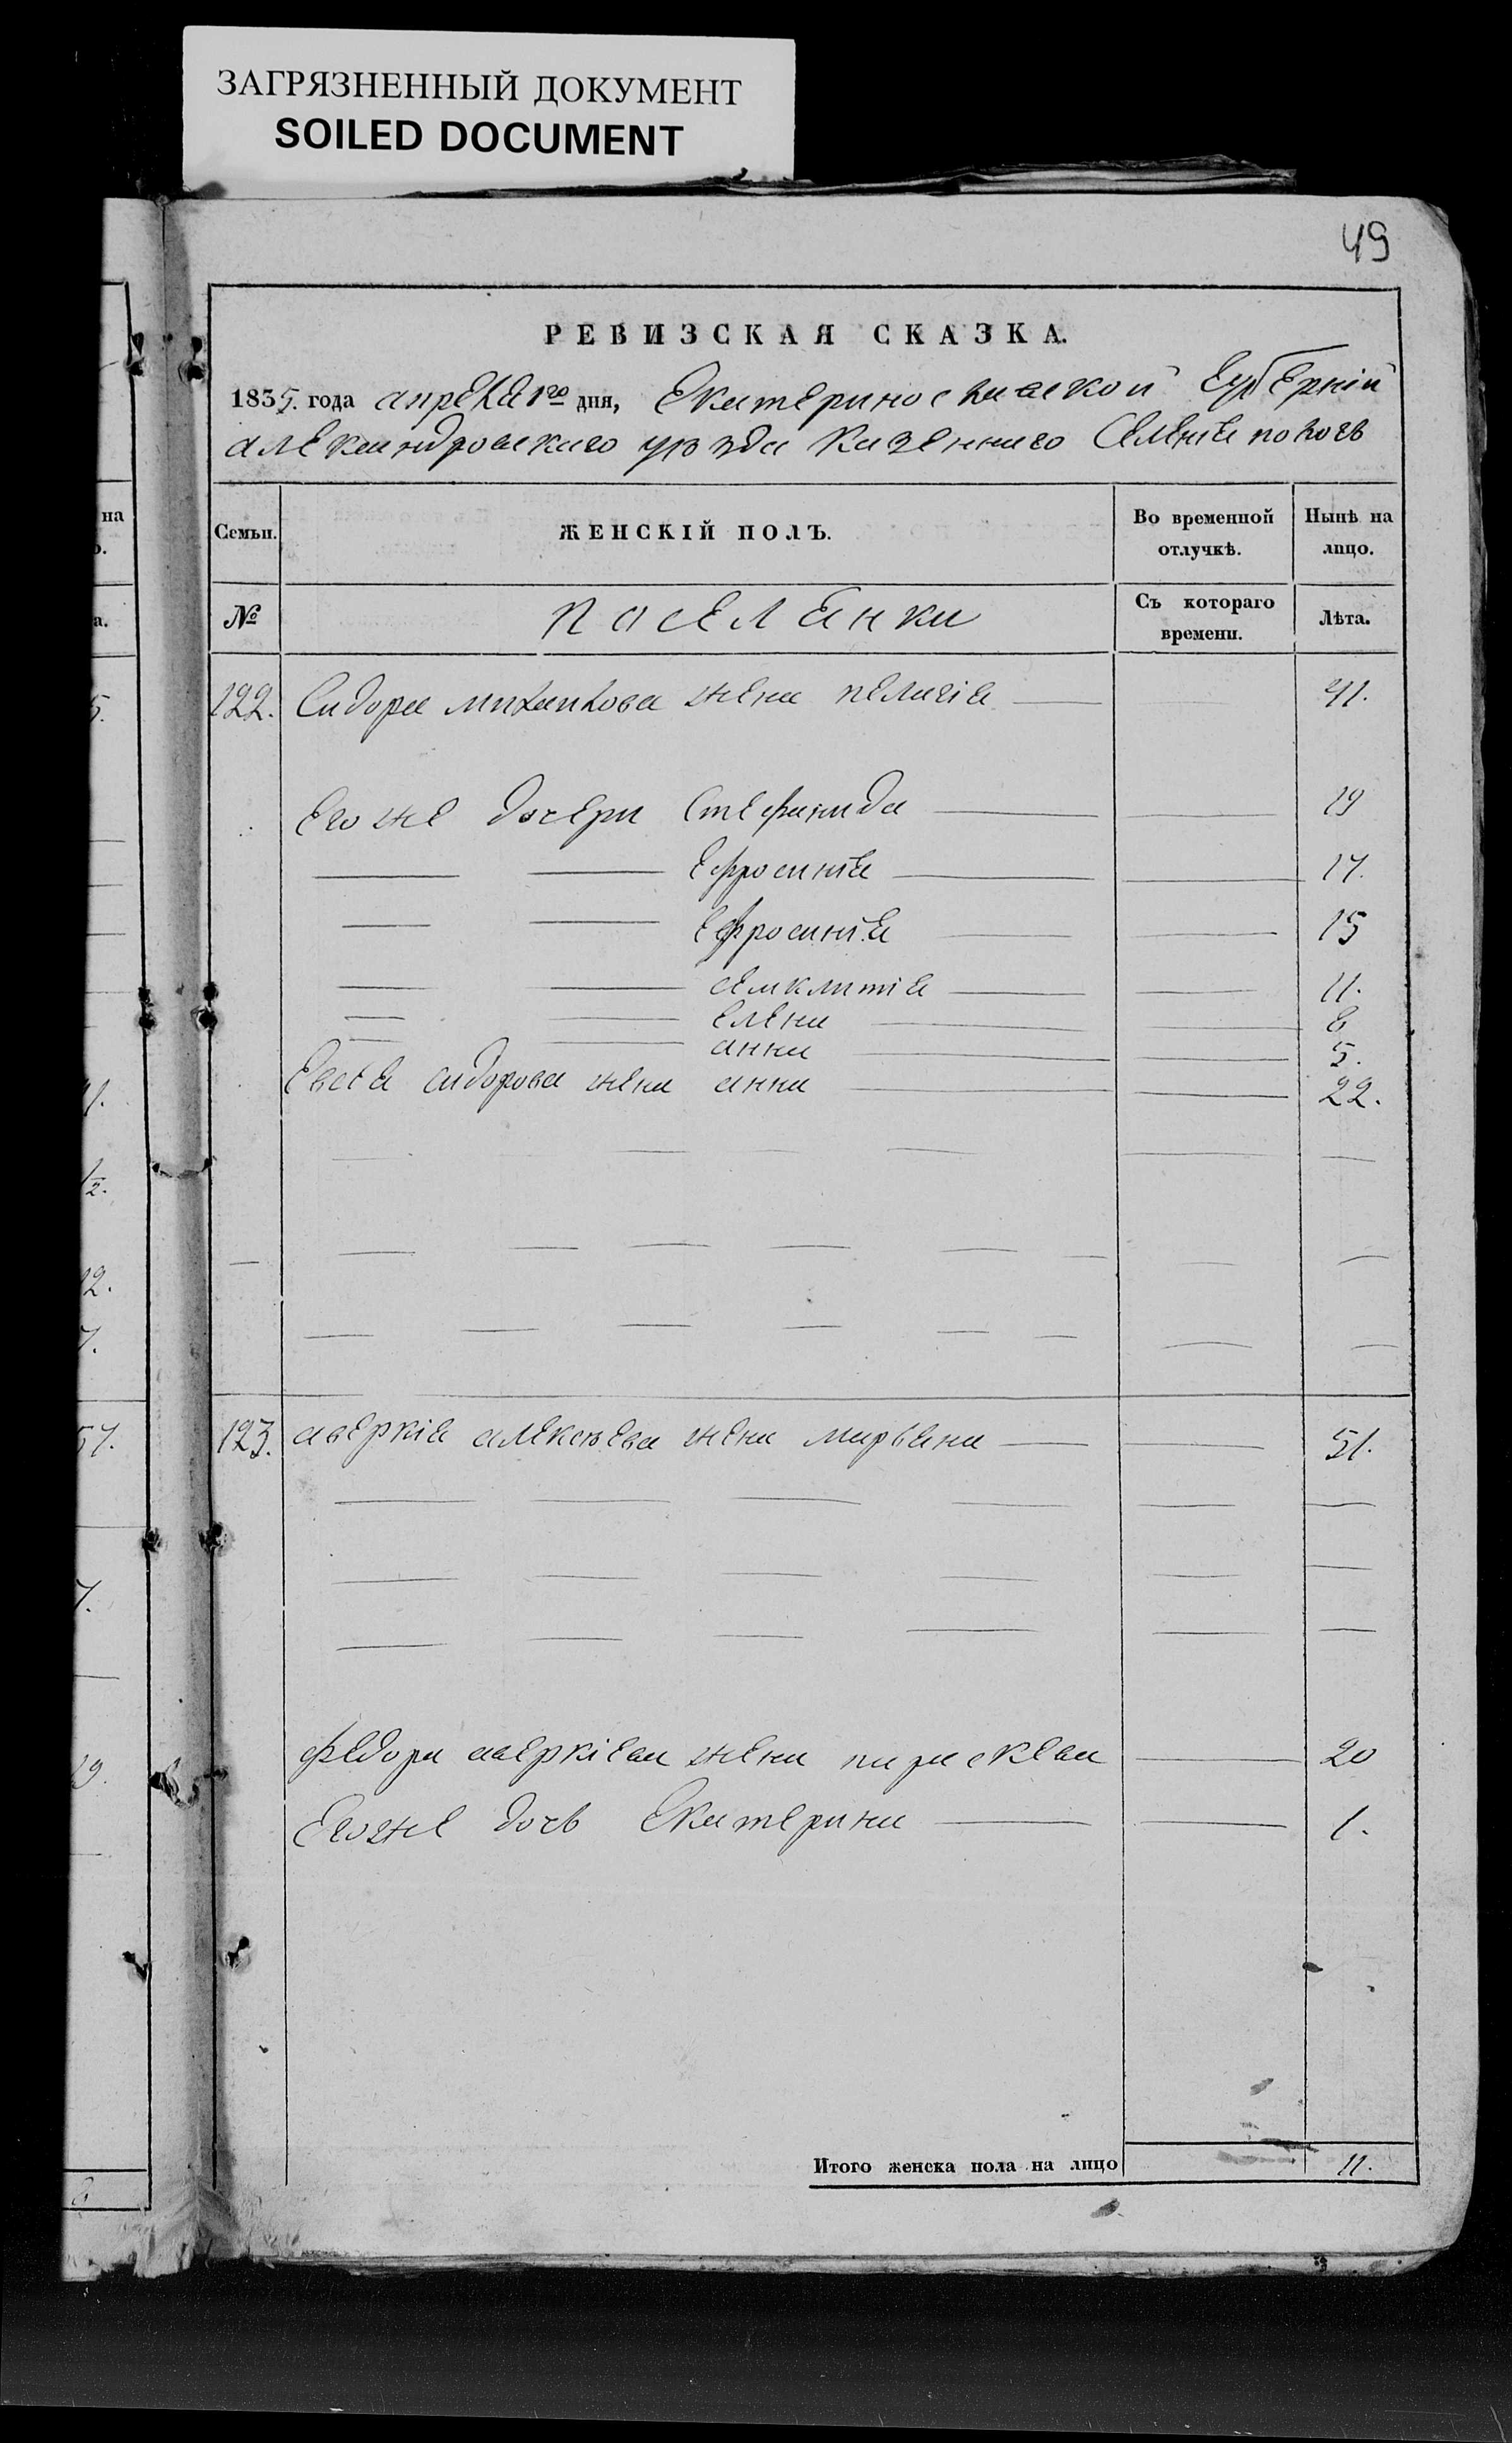 ЗАГРЯЗНЕННЫЙ ДОКУМЕНТ
SOILED DOCUMENT
49
РЕВИЗСКАЯ СКАЗКА.
1835. года апреля 1го дня, Екатеринославской Губернїй
александровскаго уѣзда Казеннаго Селенія пологъ
Семьи. ЖЕНСКІЙ ПОЛЪ. Во временной отлучкѣ. Нынѣ на лицо.
№ поселянки Съ котораго времени. Лѣта.
122. Сидора михайлова жена пелагіа 41.
Его же дочери Стефанида 19
Ефросинія 17.
Ефросинія 15
11.
елена 6
анна 5.
Евсея сидорова жена анна 22.
123. аверкія алексѣева жена марьяна 51.
федора аверкіева жена параскева 20
Егоже дочь Екатерина 1.
Итого женска пола на лицо 11.
на
5.
1.
1/2.
12.
7.
57.
7.
19.